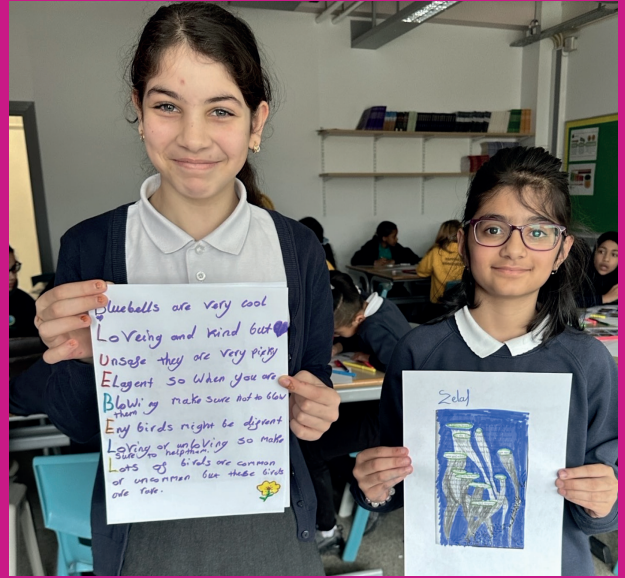 Bluebells are very cool
Loveing and kind but
Unsafe they are very picky
Elagent so when you are
Blowing make sure not to blow
them
Eny birds might be digrent
Loving or unloving so make
sure to help them.
Lots of birds are common
or uncommon but these birds
are rare.
Zelal